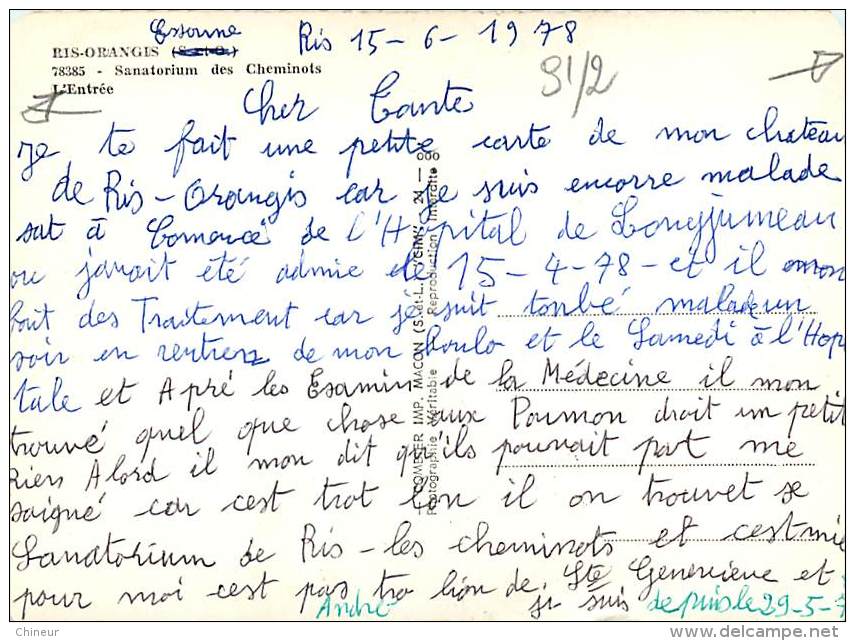 Essonne
Ris 15-6-1978
RIS-ORANGIS (S.-et-O.)
78385 - Sanatorium des Cheminots
L'Entrée
S1/2
Cher Tante
Je te fait une petite carte de mon chateau
de Ris-Orangis car je suis encorre malade
sat à Comencé de l'Hopital de Longjumeau
ou javait été admie le 15-4-78- et il mon
fait des Traitement car je suit tonbé malade un
soir en rentrer de mon boulo et le Samedi à l'Hopi
tale et Apré les Examin de la Médecine il mon
trouvé quel que chose aux Poumon droit un petit
Riens Alord il mon dit qu'ils pouvait pat me
saigné car cest trot lon il on trouvet se
Sanatorium de Ris-les cheminots et cest mie
pour moi cest pas tro lion de Ste Geneviève et
André je suis depuis le 29-5-7
COMBIER IMP. MACON (S.-et-L.) "CIM" 24 — 000
Photographie Véritable Reproduction Interdite
Chineur
delcampe.net